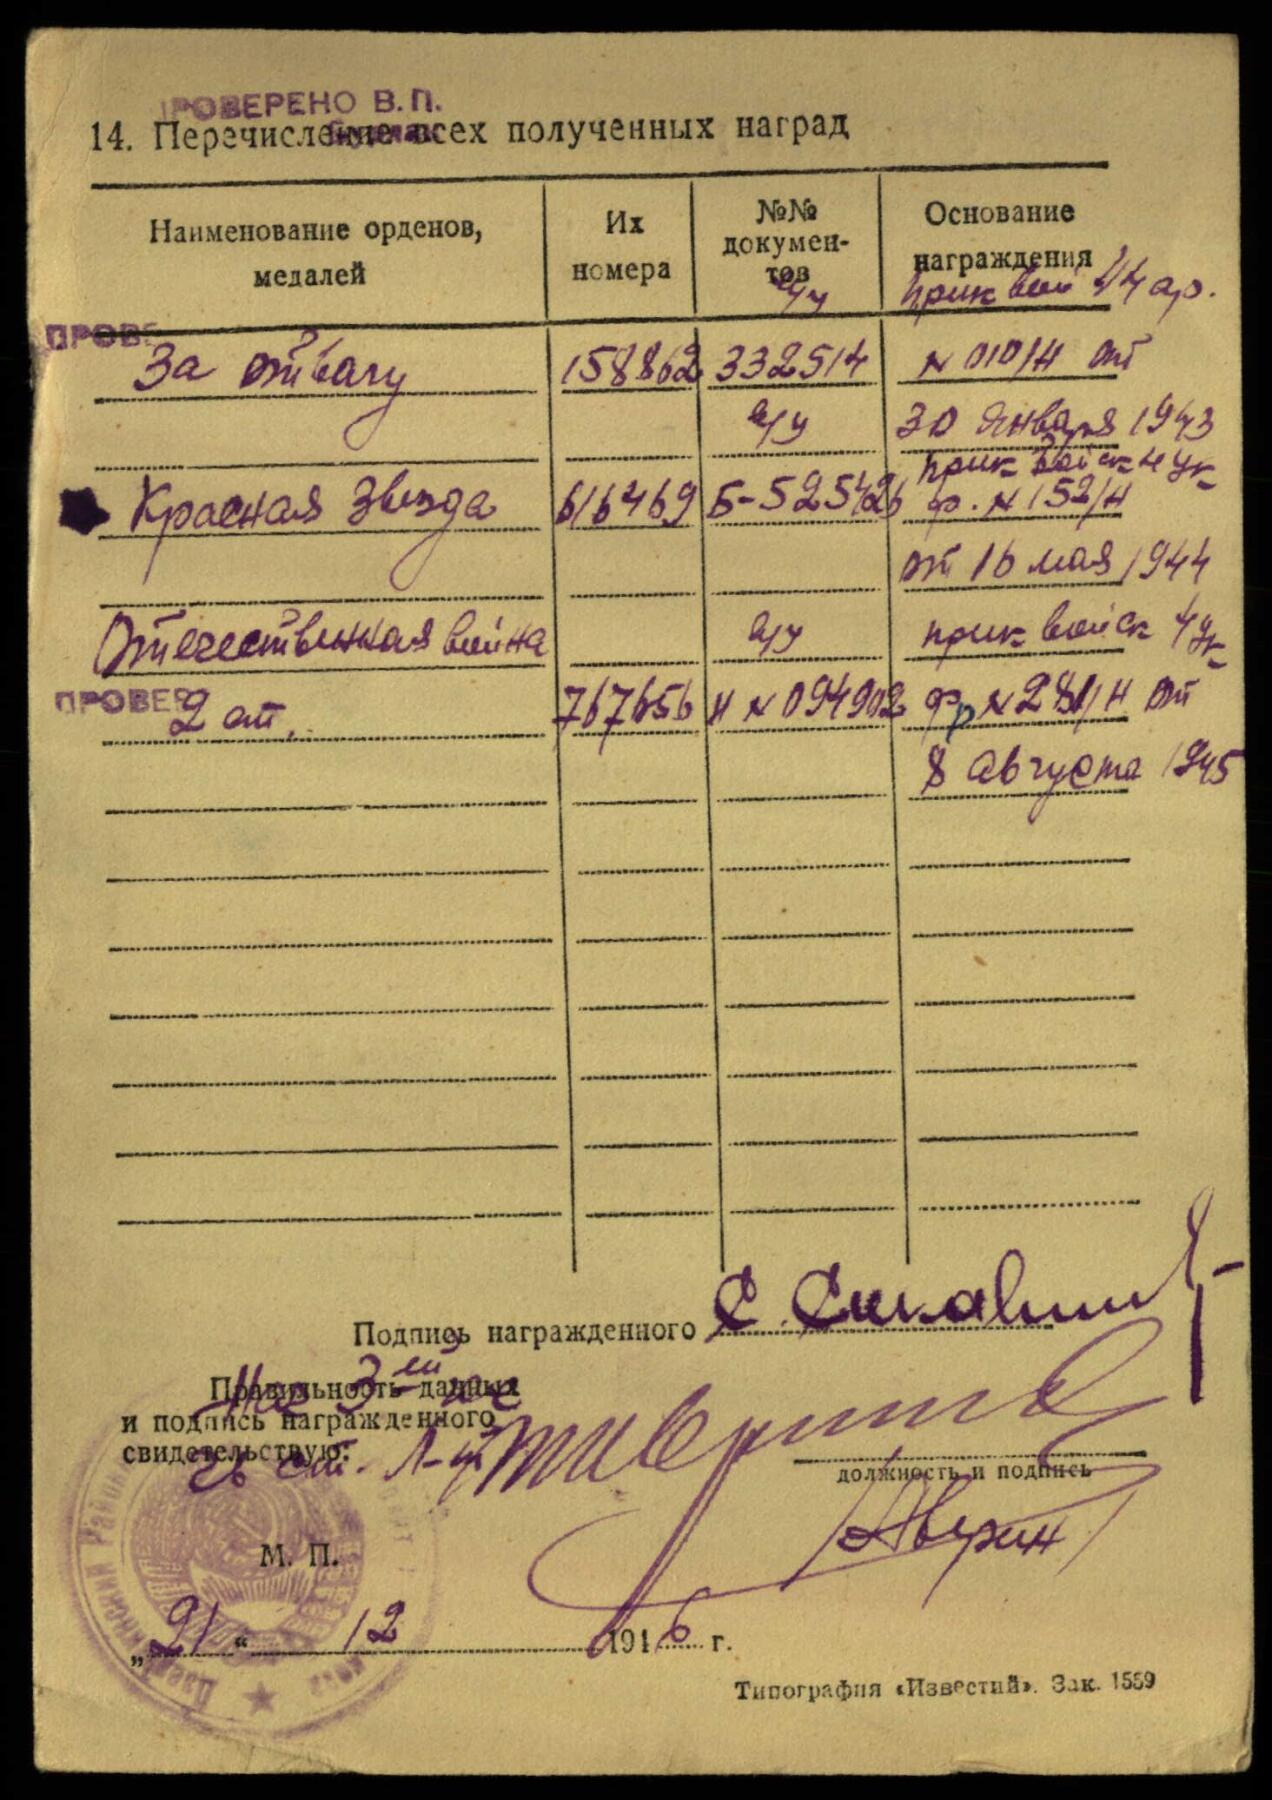 ПРОВЕРЕНО В.П.
14. Перечисление всех полученных наград
Наименование орденов, медалей
Их номера
№№ документов
Основание награждения
ПРОВЕ
у/у
прик вой 44 ар.
За отвагу 158862 332514 N 010/Н от
у/у 30 января 1943
прик войск 4 Ук
Красная Звезда 616469 Б-525426 ф. N 152/Н
от 16 мая 1944
Отечественная война у/у прик войск 4 Ук
ПРОВЕР
2 ст. 767656 Н N 094902 фр N 281/Н от
8 августа 1945
Подпись награжденного С.
Правильность данных
и подпись награжденного
свидетельствую:
Нач 3-ей
ст. Л-т
должность и подпись
/Аверин/
М. П.
„21“ 12 1946 г.
Типография «Известий». Зак. 1559